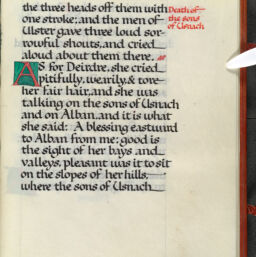 the three heads off them with
one stroke; and the men of
Ulster gave three loud sor-
rowful shouts, and cried
aloud about them there.
As for Deirdre, she cried
pitifully, wearily, & tore
her fair hair, and she was
talking on the sons of Usnach
and on Alban, and it is what
she said: A blessing eastward
to Alban from me; good is
the sight of her bays and
valleys, pleasant was it to sit
on the slopes of her hills,
where the sons of Usnach
Death of
the sons
of Usnach